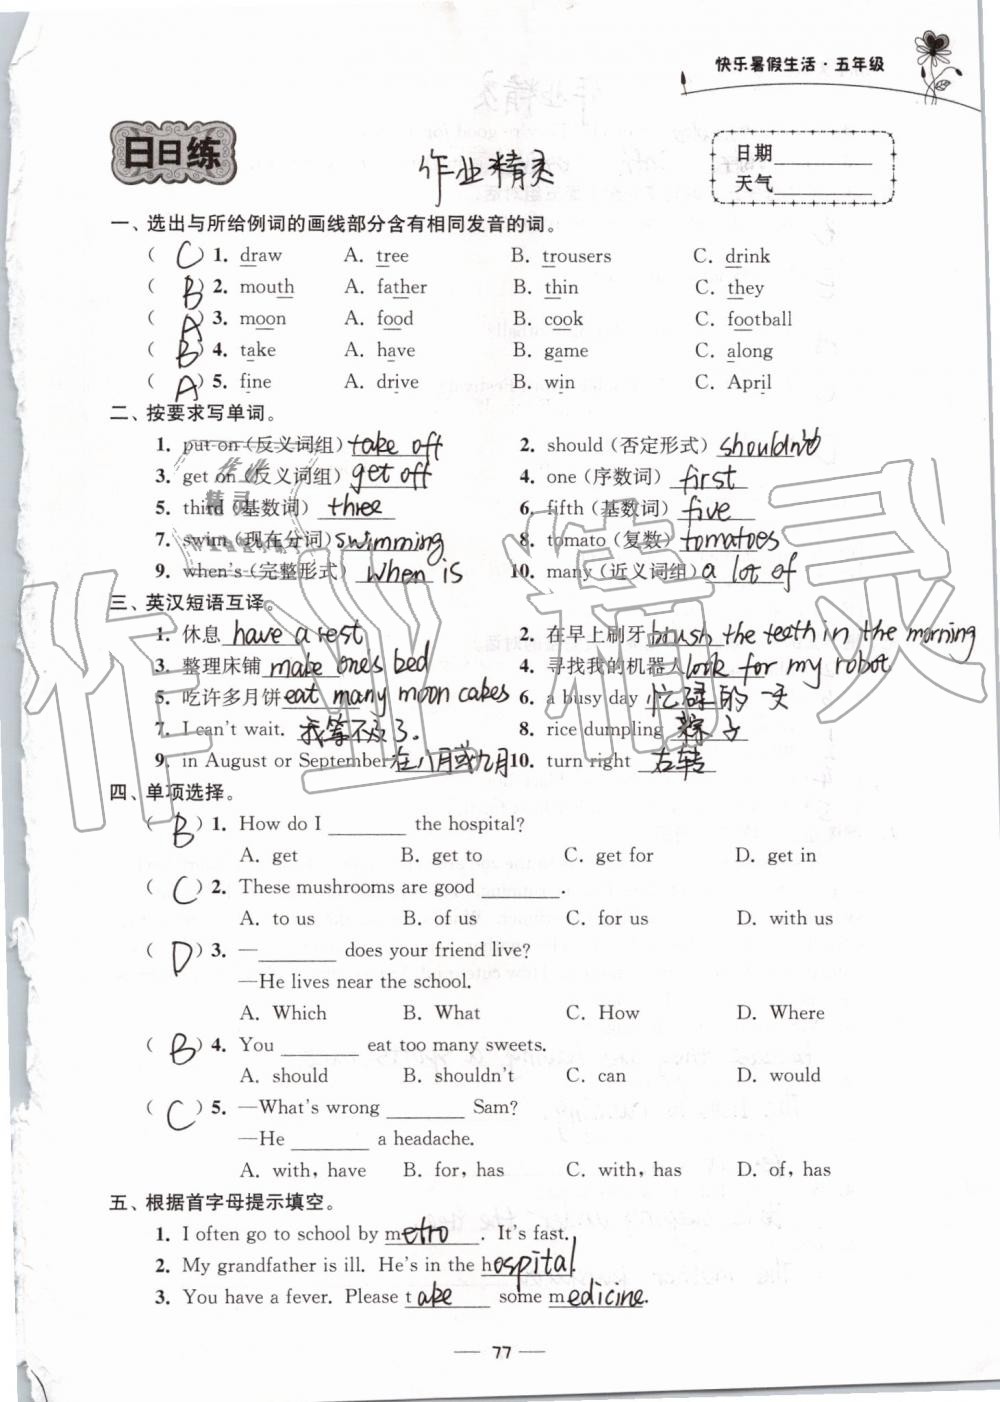 快乐暑假生活·五年级
日日练
作业精灵
日期
天气
一、选出与所给例词的画线部分含有相同发音的词。
( C ) 1. draw A. tree B. trousers C. drink
( B ) 2. mouth A. father B. thin C. they
( A ) 3. moon A. food B. cook C. football
( B ) 4. take A. have B. game C. along
( A ) 5. fine A. drive B. win C. April
二、按要求写单词。
1. put on (反义词组) take off 2. should (否定形式) shouldn't
3. get on (反义词组) get off 4. one (序数词) first
5. third (基数词) three 6. fifth (基数词) five
7. swim (现在分词) swimming 8. tomato (复数) tomatoes
9. when's (完整形式) when is 10. many (近义词组) a lot of
三、英汉短语互译。
1. 休息 have a rest 2. 在早上刷牙 brush the teeth in the morning
3. 整理床铺 make one's bed 4. 寻找我的机器人 look for my robot
5. 吃许多月饼 eat many moon cakes 6. a busy day 忙碌的一天
7. I can't wait. 我等不及了. 8. rice dumpling 粽子
9. in August or September 在八月或九月 10. turn right 右转
四、单项选择。
( B ) 1. How do I ________ the hospital?
A. get B. get to C. get for D. get in
( C ) 2. These mushrooms are good ________.
A. to us B. of us C. for us D. with us
( D ) 3. —________ does your friend live?
—He lives near the school.
A. Which B. What C. How D. Where
( B ) 4. You ________ eat too many sweets.
A. should B. shouldn't C. can D. would
( C ) 5. —What's wrong ________ Sam?
—He ________ a headache.
A. with, have B. for, has C. with, has D. of, has
五、根据首字母提示填空。
1. I often go to school by metro. It's fast.
2. My grandfather is ill. He's in the hospital.
3. You have a fever. Please take some medicine.
— 77 —
作业精灵
作业精灵